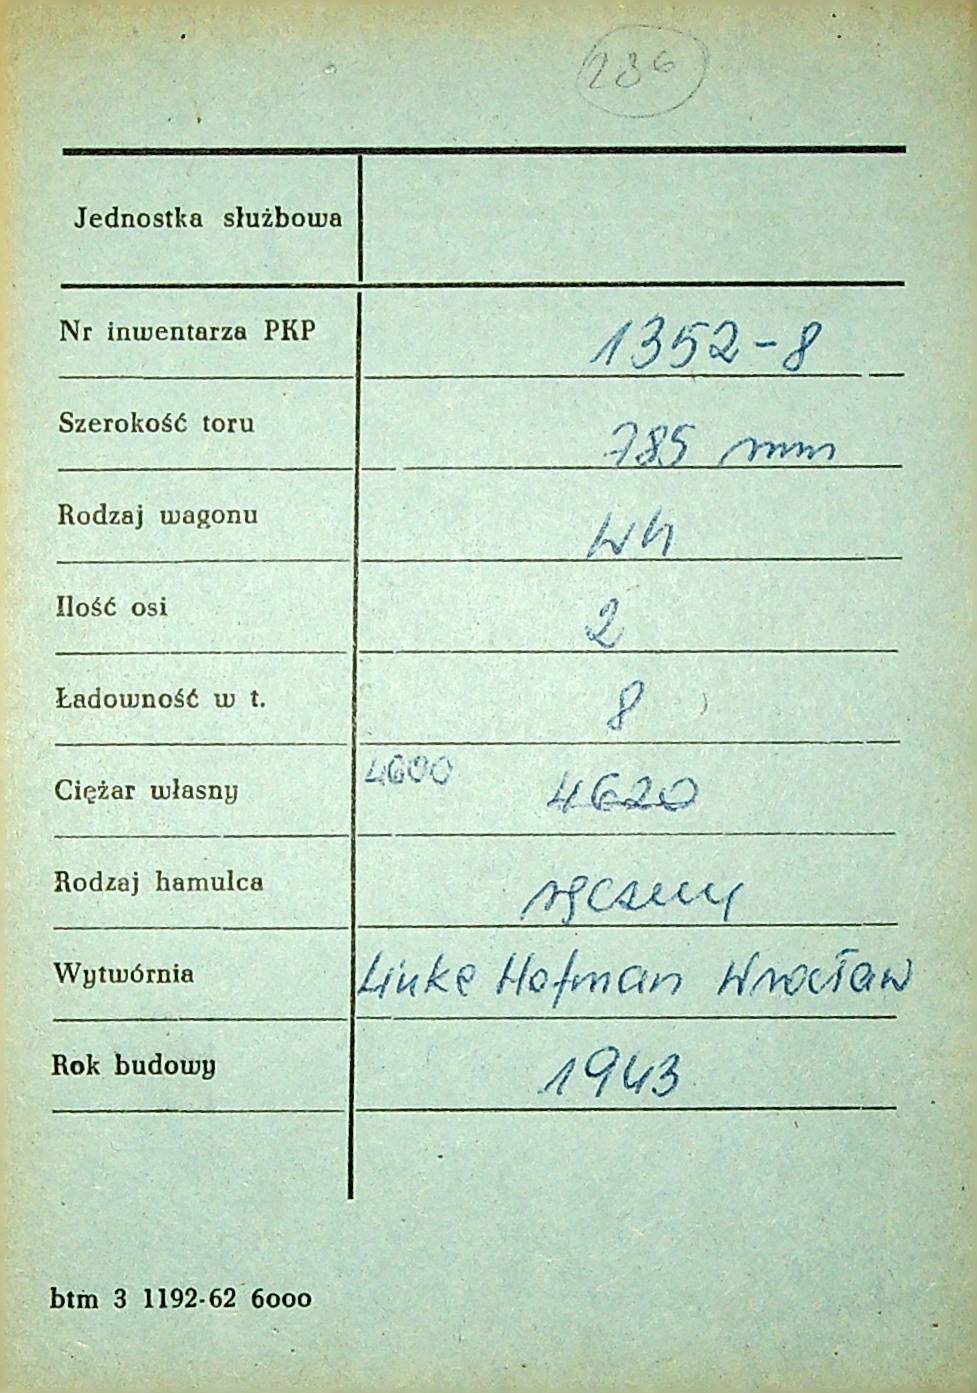 236
Jednostka służbowa
Nr inwentarza PKP 1352-8
Szerokość toru 785 mm
Rodzaj wagonu Wh
Ilość osi 2
Ładowność w t. 8
Ciężar własny 4600 4620
Rodzaj hamulca ręczny
Wytwórnia Linke Hofman Wrocław
Rok budowy 1943
btm 3 1192-62 6000